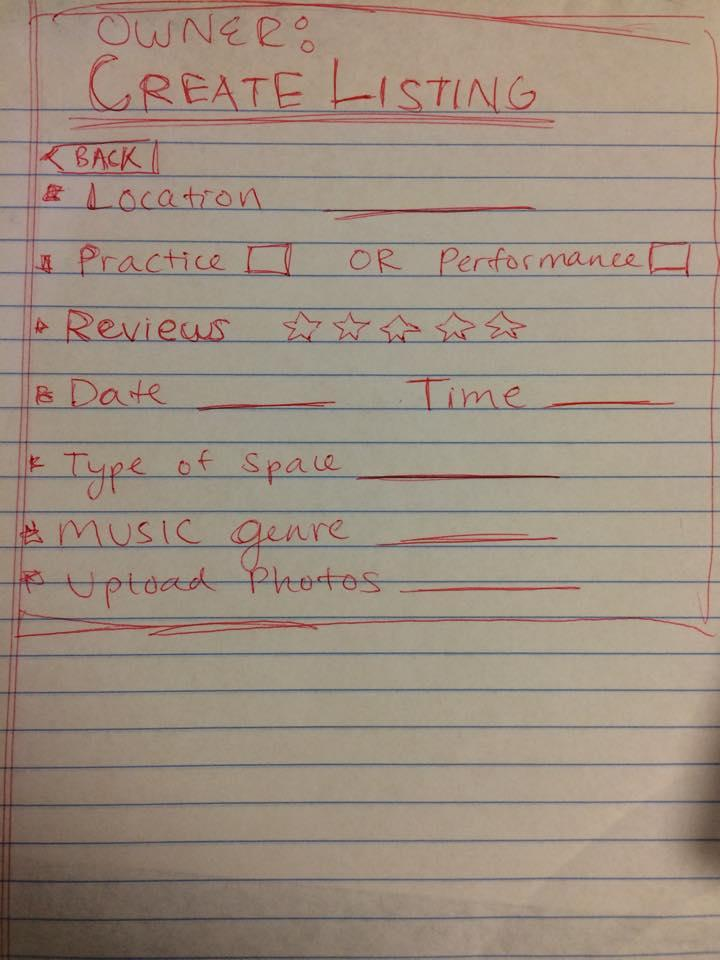 OWNER:
CREATE LISTING
BACK
Location
Practice OR Performance
Reviews
Date Time
Type of Space
MUSIC genre
Upload Photos